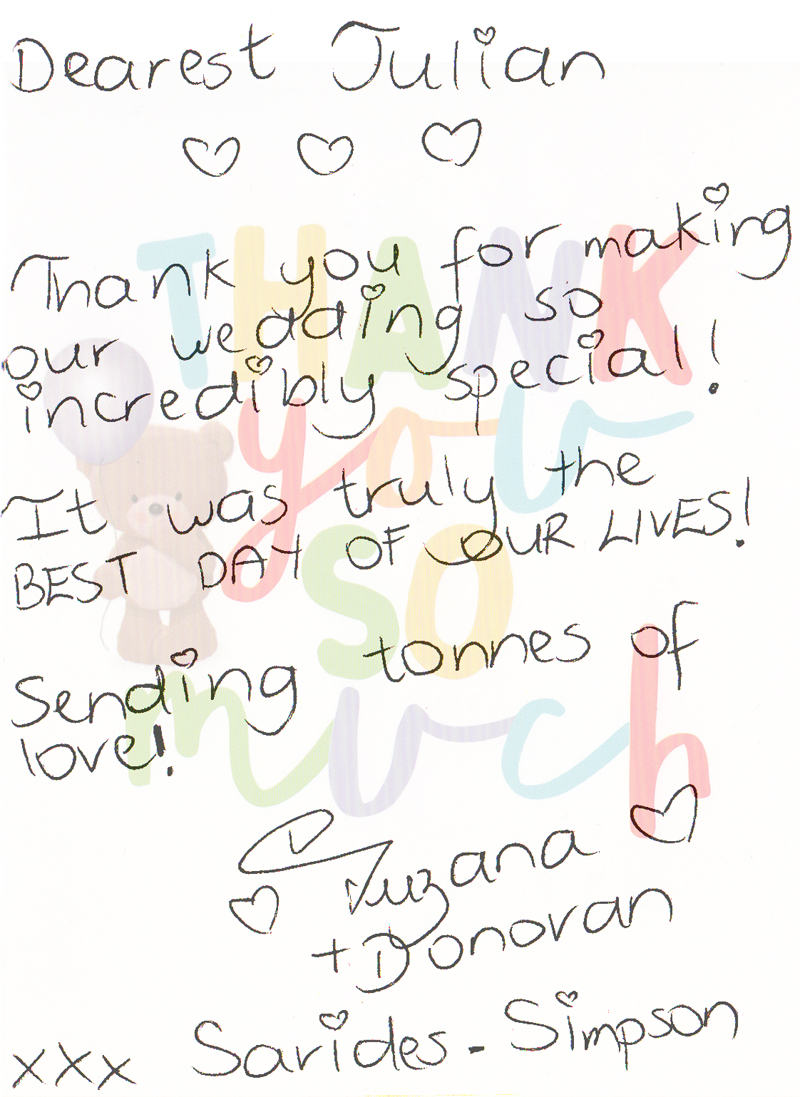 Dearest Julian
♡ ♡ ♡
Thank you for making
our wedding so
incredibly special!
It was truly the
BEST DAY OF OUR LIVES!
Sending tonnes of
love!
Suzana ♡
♡ + Donovan
xxx Sarides - Simpson
THANK
you
SO
much